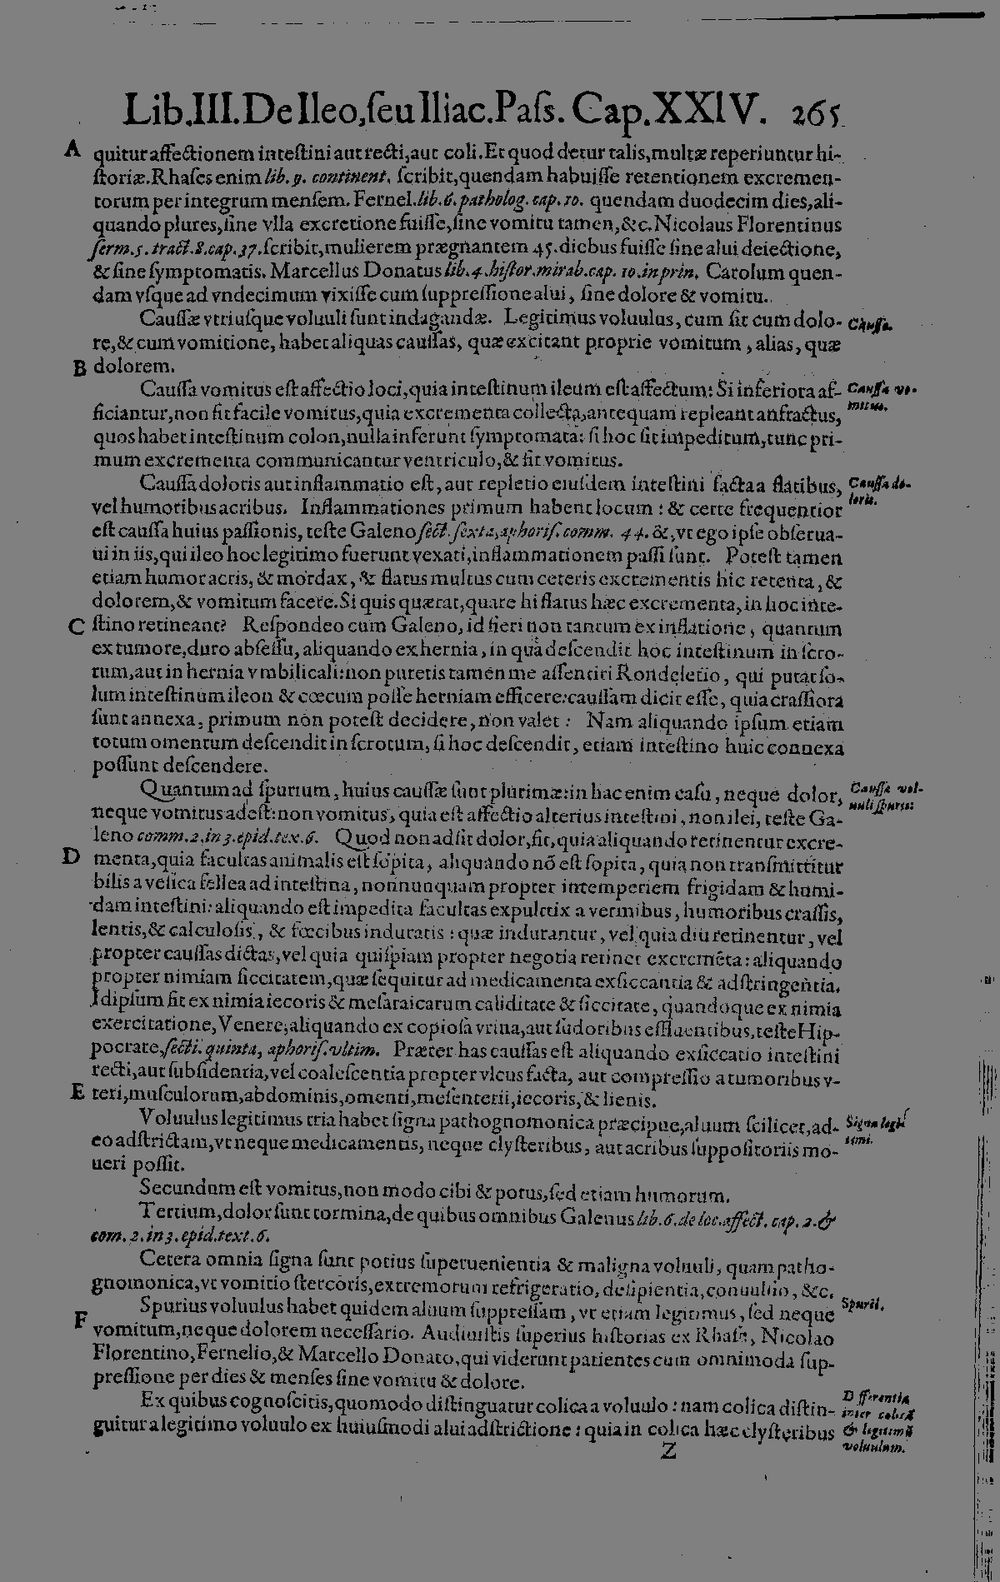 Lib.III. De Ileo, ſeu Iliac. Paſs. Cap. XXIV. 265
A quitur affectionem inteſtini aut recti, aut coli. Et quod detur talis, multæ reperiuntur hi-
ſtoriæ. Rhaſes enim lib. 9. continent. ſcribit, quendam habuiſſe retentionem excremen-
torum per integrum menſem. Fernel. lib. 6. patholog. cap. 10. quendam duodecim dies, ali-
quando plures, ſine vlla excretione fuiſſe, ſine vomitu tamen, &c. Nicolaus Florentinus
ſerm. 5. tract. 8. cap. 37. ſcribit, mulierem prægnantem 45. diebus fuiſſe ſine alui deiectione,
& ſine ſymptomatis. Marcellus Donatus lib. 4. hiſtor. mirab. cap. 10. in prin. Carolum quen-
dam vſque ad vndecimum vixiſſe cum ſuppreſſione alui, ſine dolore & vomitu.
Cauſſæ vtriuſque voluuli ſunt indagandæ. Legitimus voluulus, cum ſit cum dolo- Cauſſa.
re, & cum vomitione, habet aliquas cauſſas, quæ excitant proprie vomitum, alias, quæ
B dolorem.
Cauſſa vomitus eſt affectio loci, quia inteſtinum ileum eſt affectum: Si inferiora af- Cauſſa vo-
ficiantur, non fit facile vomitus, quia excrementa collecta, antequam repleant anfractus, mitus.
quos habet inteſtinum colon, nulla inferunt ſymptomata: ſi hoc ſit impeditum, tunc pri-
mum excrementa communicantur ventriculo, & fit vomitus.
Cauſſa doloris aut inflammatio eſt, aut repletio eiuſdem inteſtini facta a flatibus, Cauſſa do-
vel humoribus acribus. Inflammationes primum habent locum: & certe frequentior loris.
eſt cauſſa huius paſſionis, teſte Galeno ſect. ſexta, aphoriſ. comm. 44. &, vt ego ipſe obſerua-
ui in iis, qui ileo hoc legitimo fuerunt vexati, inflammationem paſſi ſunt. Poteſt tamen
etiam humor acris, & mordax, & flatus multus cum ceteris excrementis hic retenta, &
dolorem, & vomitum facere. Si quis quærat, quare hi flatus hæc excrementa, in hoc inte-
C ſtino retineant? Reſpondeo cum Galeno, id fieri non tantum ex inflatione, quantum
ex tumore, duro abſeſſu, aliquando ex hernia, in qua deſcendit hoc inteſtinum in ſcro-
tum, aut in hernia vmbilicali: non putetis tamen me aſſentiri Rondeletio, qui putat ſo-
lum inteſtinum ileon & cœcum poſſe herniam efficere: cauſſam dicit eſſe, quia craſſiora
ſunt annexa, primum non poteſt decidere, non valet: Nam aliquando ipſum etiam
totum omentum deſcendit in ſcrotum, ſi hoc deſcendit, etiam inteſtino huic connexa
poſſunt deſcendere.
Quantum ad ſpurium, huius cauſſæ ſunt plurimæ: in hac enim caſu, neque dolor, Cauſſa vol-
neque vomitus adeſt: non vomitus, quia eſt affectio alterius inteſtini, non ilei, teſte Ga- uuli ſpurii.
leno comm. 2. in 3. epid. tex. 6. Quod non adſit dolor, fit, quia aliquando retinentur excre-
D menta, quia facultas animalis eſt ſopita, aliquando nõ eſt ſopita, quia non tranſmittitur
bilis a veſica fellea ad inteſtina, nonnunquam propter intemperiem frigidam & humi-
dam inteſtini: aliquando eſt impedita facultas expultrix a vermibus, humoribus craſſis,
lentis, & calculoſis, & fœcibus induratis: quæ indurantur, vel quia diu retinentur, vel
propter cauſſas dictas, vel quia quiſpiam propter negotia retinet excremẽta: aliquando
propter nimiam ſiccitatem, quæ ſequitur ad medicamenta exſiccantia & adſtringentia.
Idipſum fit ex nimia iecoris & meſaraicarum caliditate & ſiccitate, quandoque ex nimia
exercitatione, Venere, aliquando ex copioſa vrina, aut ſudoribus effluentibus, teſte Hip-
pocrate, ſecti. quinta, aphoriſ. vltim. Præter has cauſſas eſt aliquando exſiccatio inteſtini
recti, aut ſubſidentia, vel coaleſcentia propter vlcus facta, aut compreſſio a tumoribus v-
E teri, muſculorum, abdominis, omenti, meſenterii, iecoris, & lienis.
Voluulus legitimus tria habet ſigna pathognomonica præcipue, aluum ſcilicet, ad- Signa legi
eo adſtrictam, vt neque medicamentis, neque clyſteribus, aut acribus ſuppoſitoriis mo- timi.
ueri poſſit.
Secundum eſt vomitus, non modo cibi & potus, ſed etiam humorum.
Tertium, dolor ſunt tormina, de quibus omnibus Galenus lib. 6. de loc. affect. cap. 2. &
com. 2. in 3. epid. text. 6.
Cetera omnia ſigna ſunt potius ſuperuenientia & maligna voluuli, quam patho-
gnomonica, vt vomitio ſtercoris, extremorum refrigeratio, deſipientia, conuulſio, &c.
Spurius voluulus habet quidem aluum ſuppreſſam, vt etiam legitimus, ſed neque Spurii.
F vomitum, neque dolorem neceſſario. Audiuiſtis ſuperius hiſtorias ex Rhaſi, Nicolao
Florentino, Fernelio, & Marcello Donato, qui viderunt patientes cum omnimoda ſup-
preſſione per dies & menſes ſine vomitu & dolore.
Ex quibus cognoſcitis, quomodo diſtinguatur colica a voluulo: nam colica diſtin- Differentia
guitur a legitimo voluulo ex huiuſmodi alui adſtrictione: quia in colica hæc clyſteribus inter colicã
& legitimũ
Z voluulum.